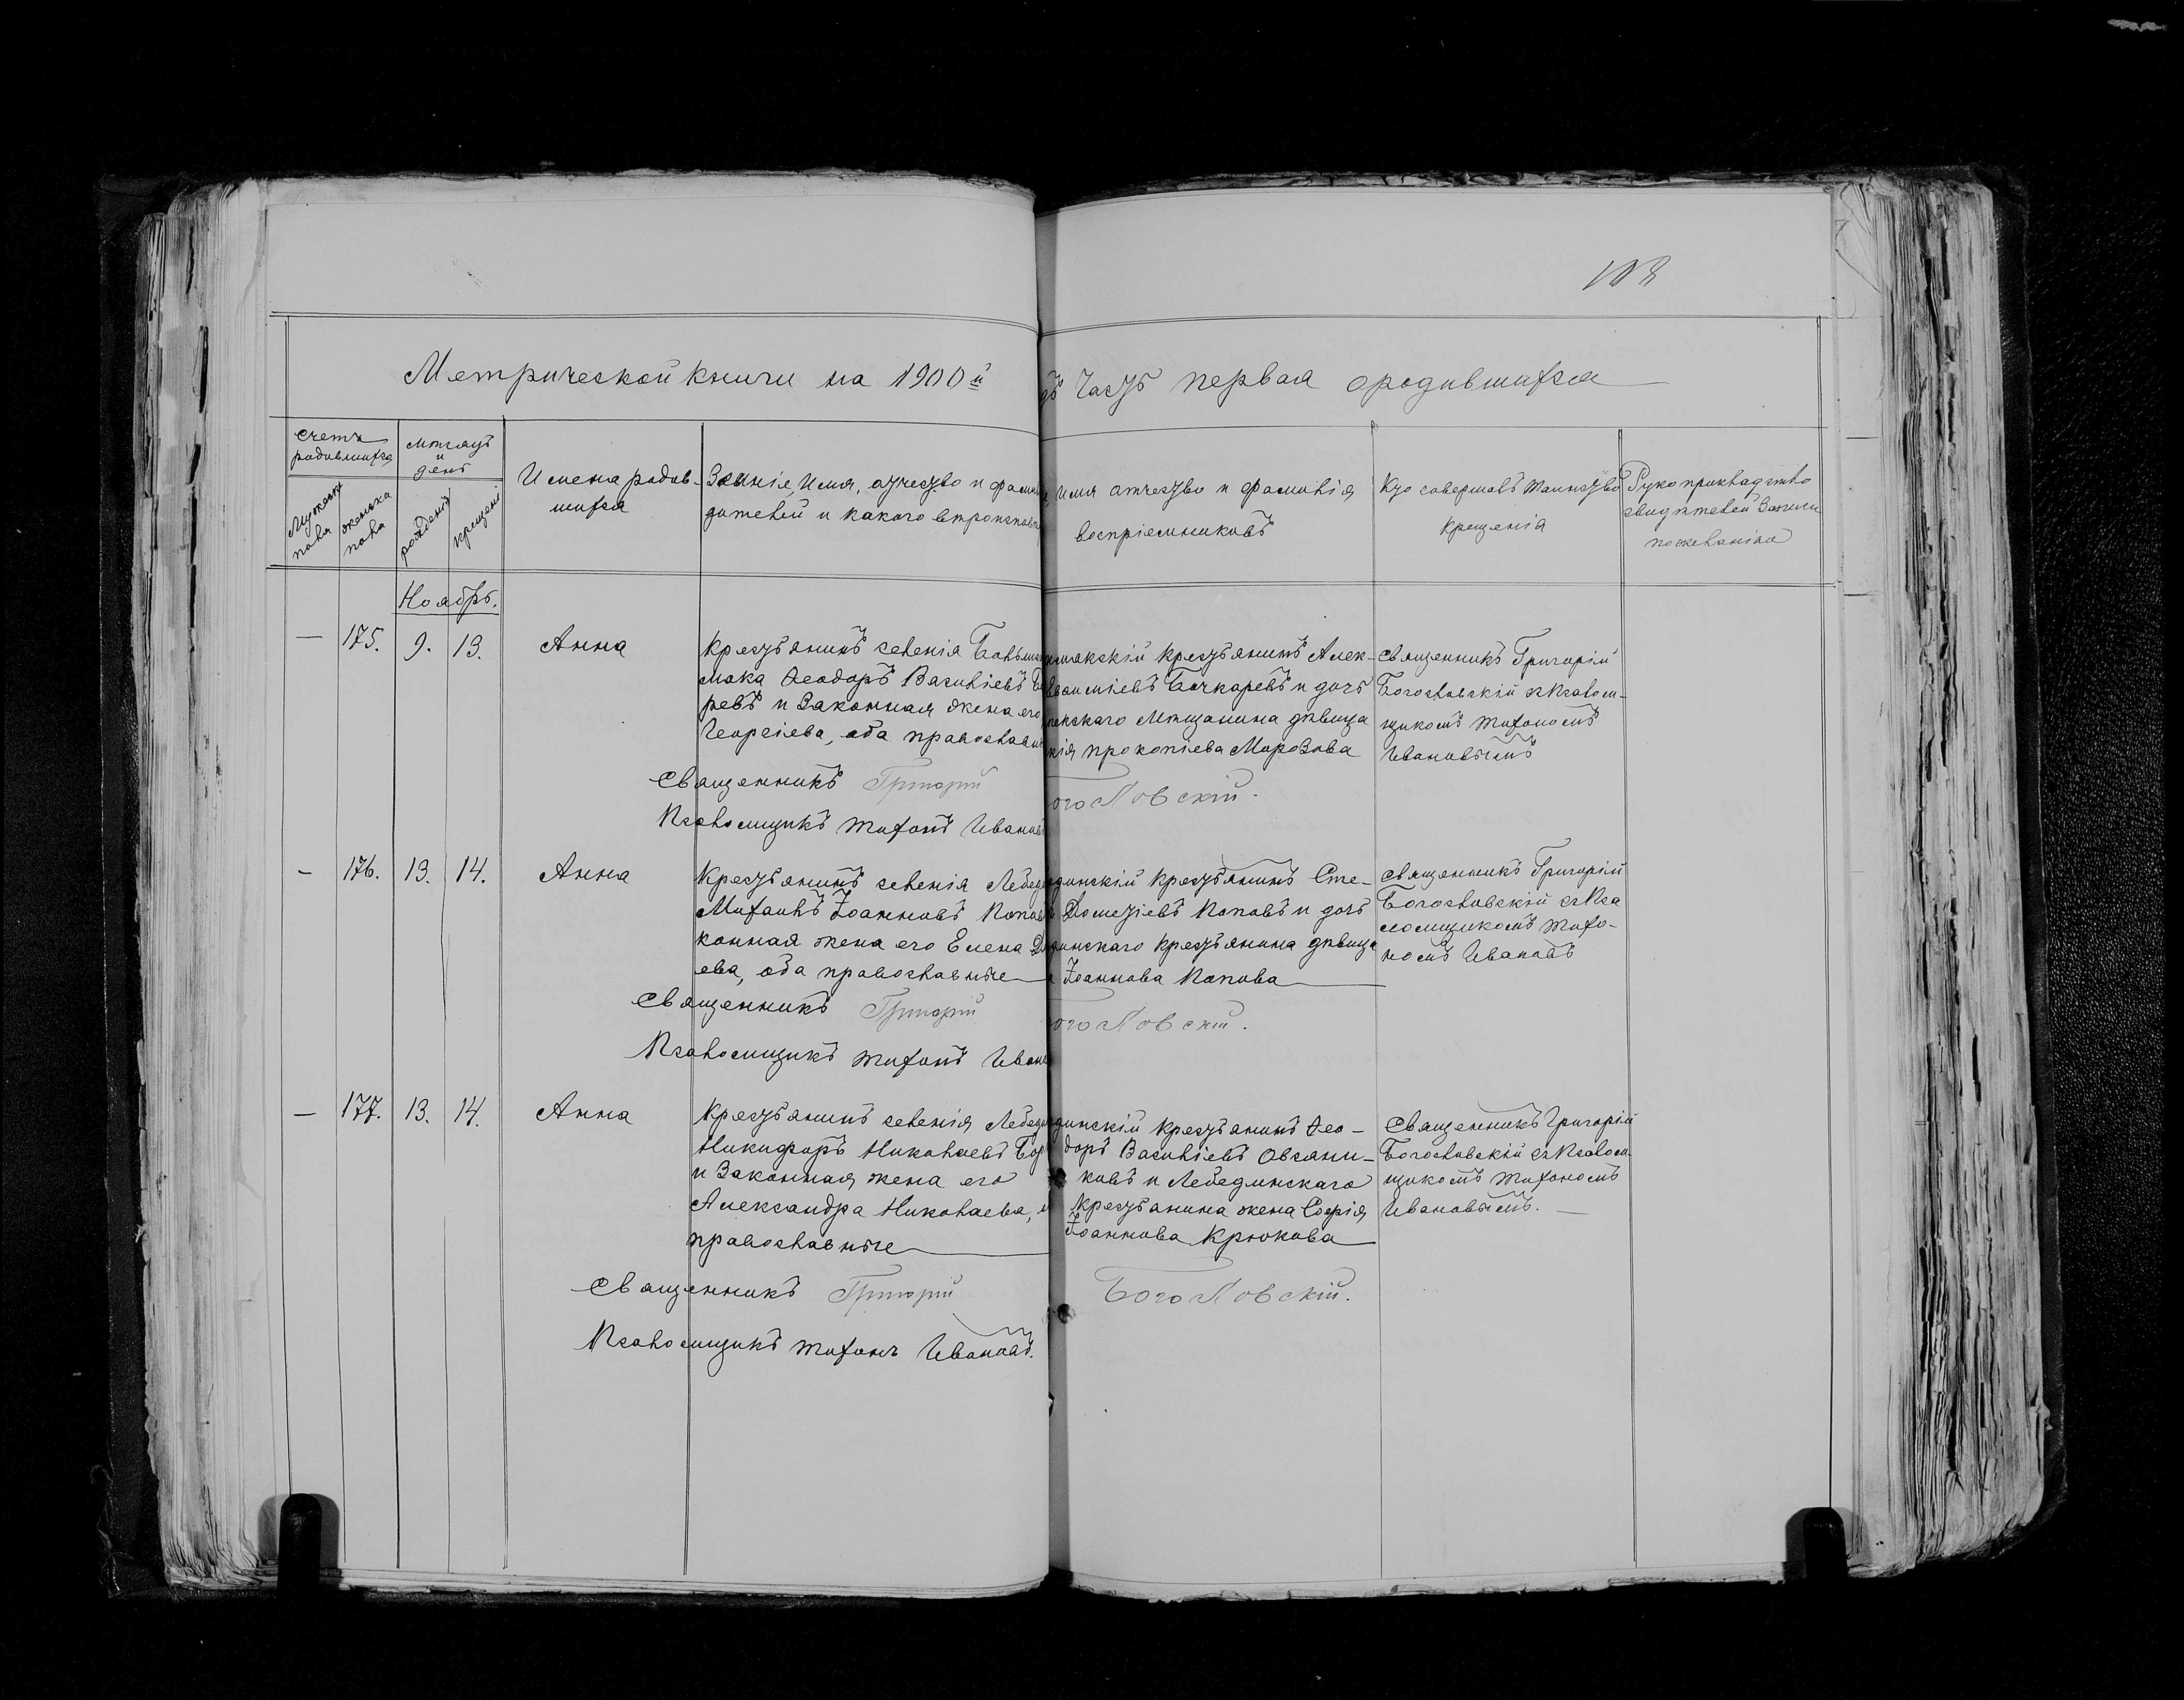 103
Метрической книги на 1900й
дъ Часть первая о родившихся
Счетъ родившихся
Мѣсяцъ и день
Мужеска пола
женска пола
рожденія
крещенія
Имена родив-
шихся
Званіе, имя, отчество и фамил
дителей и какого вѣроисповѣ
имя отчество и фамилія
воспріемниковъ
Кто совершалъ таинство
крещенія
Рукоприкладство
свидѣтелей записи
по желанію
Ноябрь.
— 175. 9. 13. Анна
Крестьянинъ селенія
мака Ѳеодоръ Василіевъ
ревъ и законная жена его
Георгіева, оба православн
крестьянинъ Алек-
Бочкаревъ и дочь
Мѣщанина дѣвица
прокопіева Морозова
священникъ Григорій
Богословскій съ Псалом-
щикомъ Тихономъ
Ивановымъ
Священникъ Григорій
огословскій.
Псаломщикъ Тихонъ Иванов
— 176. 13. 14. Анна
Крестьянинъ селенія Лебеде
Михаилъ Іоанновъ Попов
конная жена его Елена
ева, оба православные
динскій крестьянинъ Сте-
Дометіевъ Поповъ и дочь
динскаго крестьянина дѣвица
Іоаннова Попова
священникъ Григорій
Богословскій съ Пса
ломщикомъ Тихо-
номъ Ивановъ
Священникъ Григорій
огословскій.
Псаломщикъ Тихонъ Иван
— 177. 13. 14. Анна
Крестьянинъ селенія Лебеде
Никифоръ Николаевъ
и законная жена его
Александра Николаева,
православные
динскій крестьянинъ Ѳео-
доръ Василіевъ Овсяни-
ковъ и Лебединскаго
крестьянина жена Софія
Іоаннова Крюкова
Священникъ Григорій
Богословскій съ Псалом-
щикомъ Тихономъ
Ивановымъ.
Священникъ Григорій
Богословскій.
Псаломщикъ Тихонъ Ивановъ.